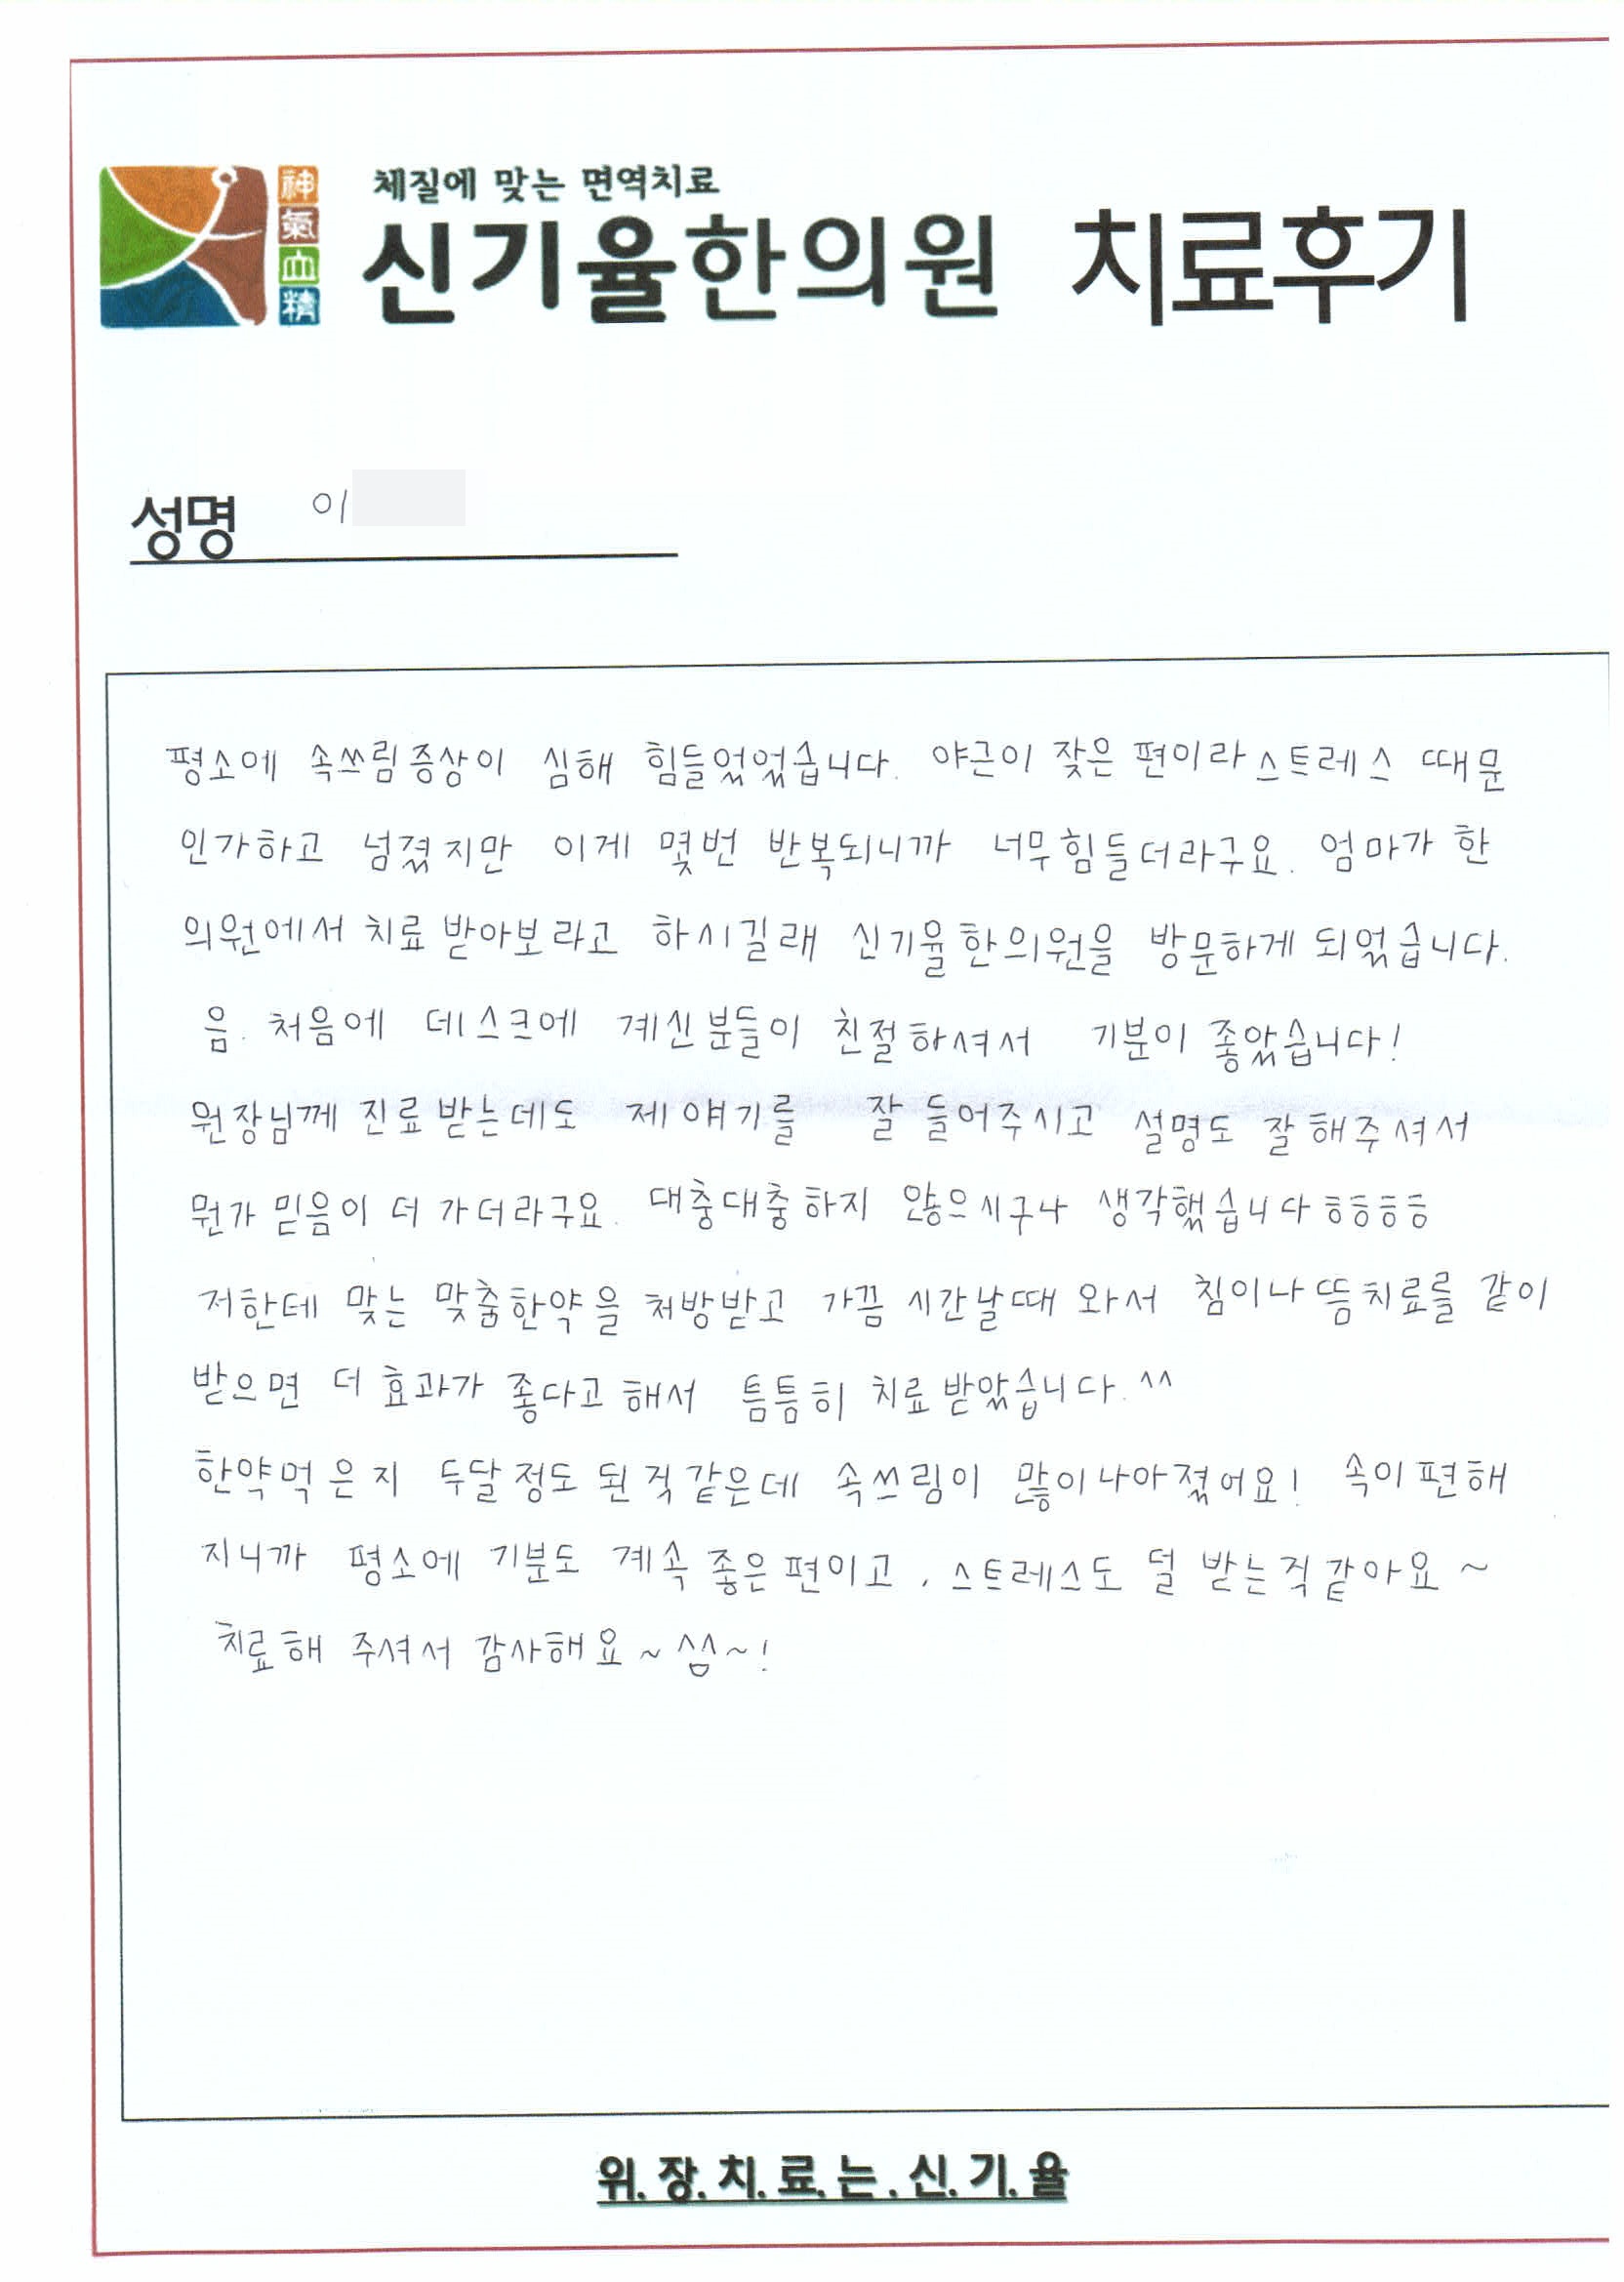 神
氣
血
精
체질에 맞는 면역치료
신기율한의원 치료후기
성명 이
평소에 속쓰림증상이 심해 힘들었었습니다. 야근이 잦은 편이라 스트레스 때문
인가하고 넘겼지만 이게 몇번 반복되니까 너무힘들더라구요. 엄마가 한
의원에서 치료 받아보라고 하시길래 신기율한의원을 방문하게 되었습니다.
음. 처음에 데스크에 계신분들이 친절하셔서 기분이 좋았습니다!
원장님께 진료받는데도 제 얘기를 잘 들어주시고 설명도 잘해주셔서
뭔가 믿음이 더 가더라구요. 대충대충하지 않으시구나 생각했습니다 ㅎㅎㅎㅎ
저한테 맞는 맞춤한약을 처방받고 가끔 시간날때 와서 침이나 뜸치료를 같이
받으면 더 효과가 좋다고 해서 틈틈히 치료받았습니다.^^
한약먹은지 두달정도 된것같은데 속쓰림이 많이나아졌어요! 속이편해
지니까 평소에 기분도 계속 좋은편이고, 스트레스도 덜 받는것같아요~
치료해 주셔서 감사해요~^^~!
위.장.치.료.는.신.기.율